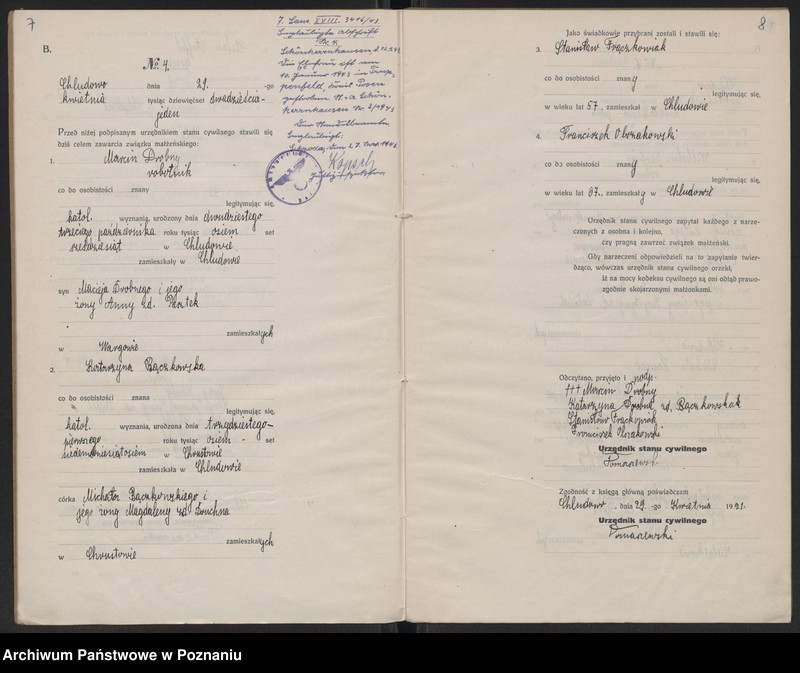 7
B.
№ 4.
Chludowo dnia 29. -go
kwietnia tysiąc dziewięćset dwadzieścia-
jeden
Przed niżej podpisanym urzędnikiem stanu cywilnego stawili się
dziś celem zawarcia związku małżeńskiego:
1. Marcin Drobny
robotnik
co do osobistości znany
legitymując się,
katol. wyznania, urodzony dnia dwudziestego
trzeciego października roku tysiąc ośiem set
sześćdziesiąt w Chludowie
zamieszkały w Chludowie
syn Macieja Drobnego i jego
żony Anny zd.
zamieszkałych
w Wargowie
2. Katarzyna Bączkowska
co do osobistości znana
legitymując się,
katol. wyznania, urodzona dnia trzydziestego-
pierwszego roku tysiąc ośiem - set
siedemdziesiątośiem w Chrustowie
zamieszkała w Chludowie
córka Michała Bączkowskiego i
jego żony Magdaleny zd.
zamieszkałych
w Chrustowie
7. XVIII. 3416/43
Beglaubigte Abschrift
Schönherrnhausen, d
Die Ehefrau ist am
10. Januar 1943 in
penfeld, Kreis Posen
gestorben. St. A. Schön-
herrnhausen Nr. 2/1943
Der Standesbeamte
Beglaubigt:
8
Jako świadkowie przybrani zostali i stawili się:
3. Stanisław Frąckowiak
co do osobistości znany
legitymując się,
w wieku lat 57, zamieszkał w Chludowie
4. Franciszek
co do osobistości znany
legitymując się,
w wieku lat 37., zamieszkały w Chludowie
Urzędnik stanu cywilnego zapytał każdego z narze-
czonych z osobna i kolejno,
czy pragną zawrzeć związek małżeński.
Gdy narzeczeni odpowiedzieli na to zapytanie twier-
dząco, wówczas urzędnik stanu cywilnego orzekł,
iż na mocy kodeksu cywilnego są oni odtąd prawo-
zgodnie skojarzonymi małżonkami.
Odczytano, przyjęto i podp.
+++ Marcin Drobny
Katarzyna Drobna zd. Bączkowska
Stanisław Frąckowiak
Franciszek
Urzędnik stanu cywilnego
Tomaszewski
Zgodność z księgą główną poświadczam
Chludowo, dnia 29. -go Kwietnia 1921.
Urzędnik stanu cywilnego
Tomaszewski
Archiwum Państwowe w Poznaniu